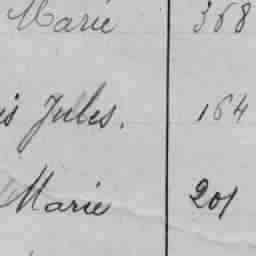 Marie 368
is Jules. 164
Marie 201